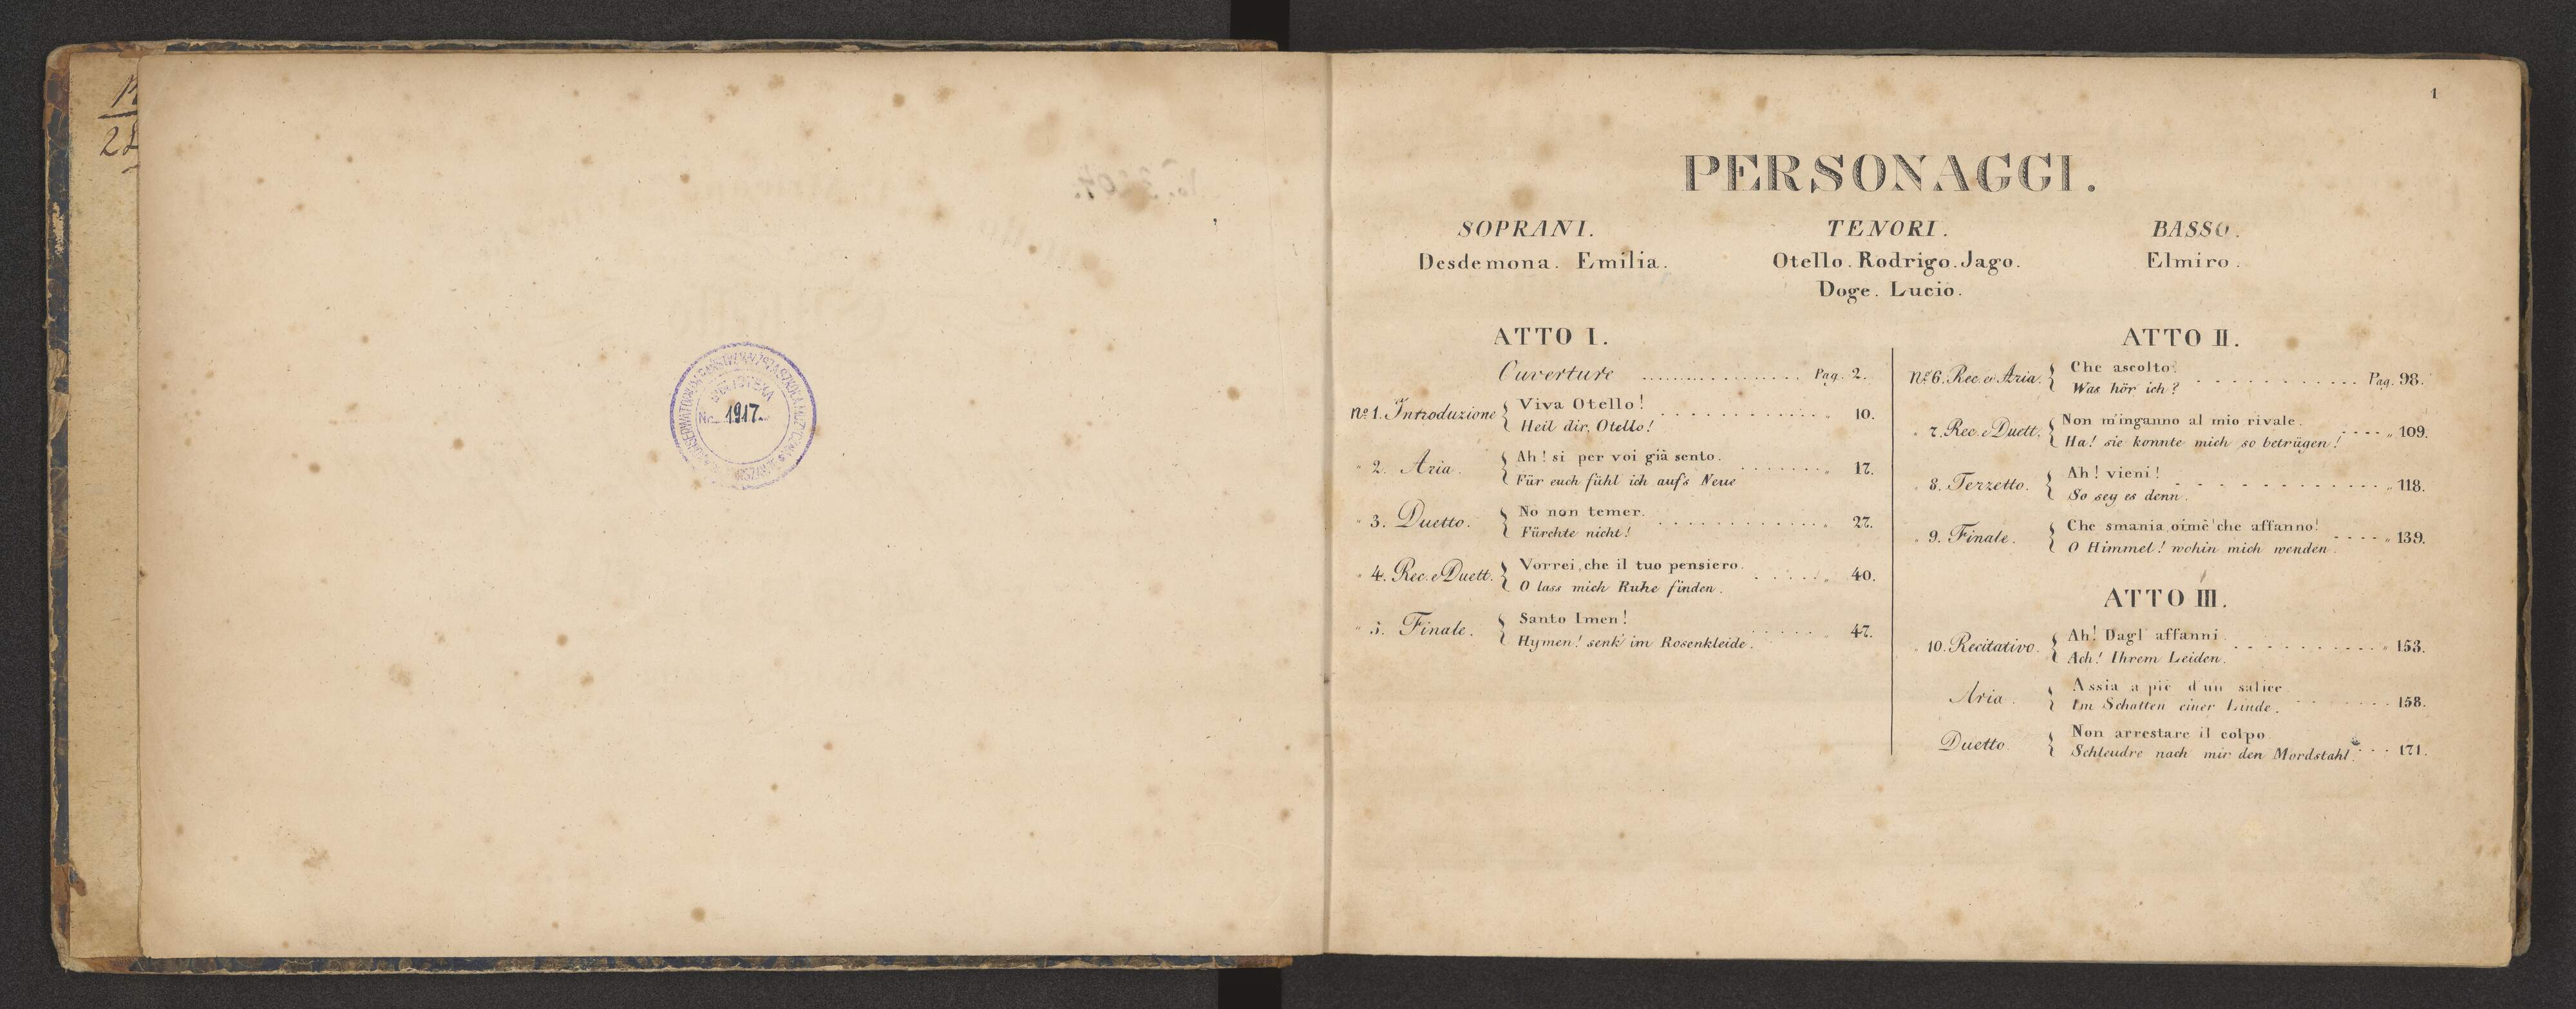 1917.
1
PERSONAGGI.
SOPRANI.
Desdemona. Emilia.
TENORI.
Otello. Rodrigo. Jago.
Doge. Lucio.
BASSO.
Elmiro.
ATTO I.
Ouverture ................ Pag. 2.
No. 1. Introduzione { Viva Otello!
Heil dir, Otello! . . . . . . . . . . . . . „ 10.
„ 2. Aria. { Ah! si per voi già sento.
Für euch fühl ich auf's Neue . . . . . . . „ 17.
„ 3. Duetto. { No non temer.
Fürchte nicht! . . . . . . . . . . . . . „ 27.
„ 4. Rec. e Duett. { Vorrei, che il tuo pensiero.
O lass mich Ruhe finden. . . . . . „ 40.
„ 5. Finale. { Santo Imen!
Hymen! senk' im Rosenkleide. . . . . . „ 47.
ATTO II.
No. 6. Rec. e Aria. { Che ascolto?
Was hör ich? . . . . . . . . . . . . . . Pag. 98.
„ 7. Rec. e Duett. { Non m'inganno al mio rivale.
Ha! sie konnte mich so betrügen! . . . . „ 109.
„ 8. Terzetto. { Ah! vieni!
So sey es denn. . . . . . . . . . . . . . „ 118.
„ 9. Finale. { Che smania, oimè! che affanno!
O Himmel! wohin mich wenden. . . . . „ 139.
ATTO III.
„ 10. Recitativo. { Ah! Dagl affanni.
Ach! Ihrem Leiden. . . . . . . . . . . „ 153.
Aria. { Assia a piè d'un salice.
Im Schatten einer Linde. . . . . . . . 158.
Duetto. { Non arrestare il colpo.
Schleudre nach mir den Mordstahl. . . . 171.